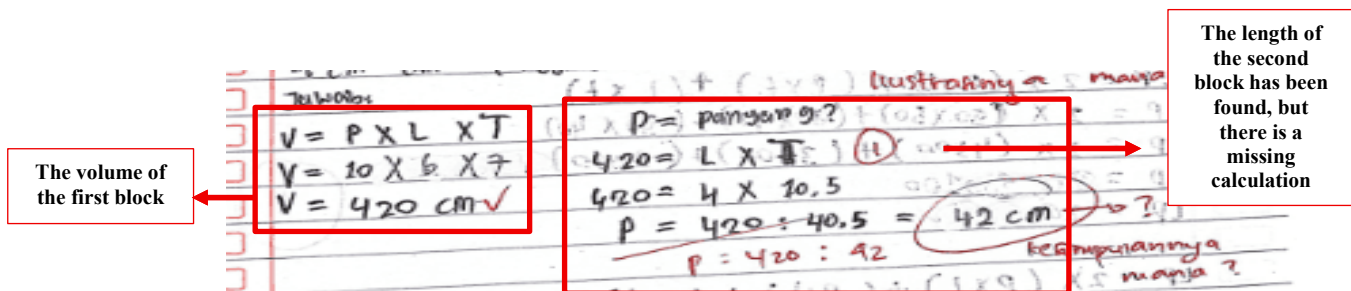 The volume of
the first block
Jawab:
V = P X L X T
V = 10 X 6 X 7
V = 420 cm ✓
Ilustrasinya manja
P = panjang?
420 = L X T
420 = 4 X 10.5
P = 420 : 40.5 = 42 cm → ?
P = 420 : 42
kesimpulannya
manja ?
The length of
the second
block has been
found, but
there is a
missing
calculation